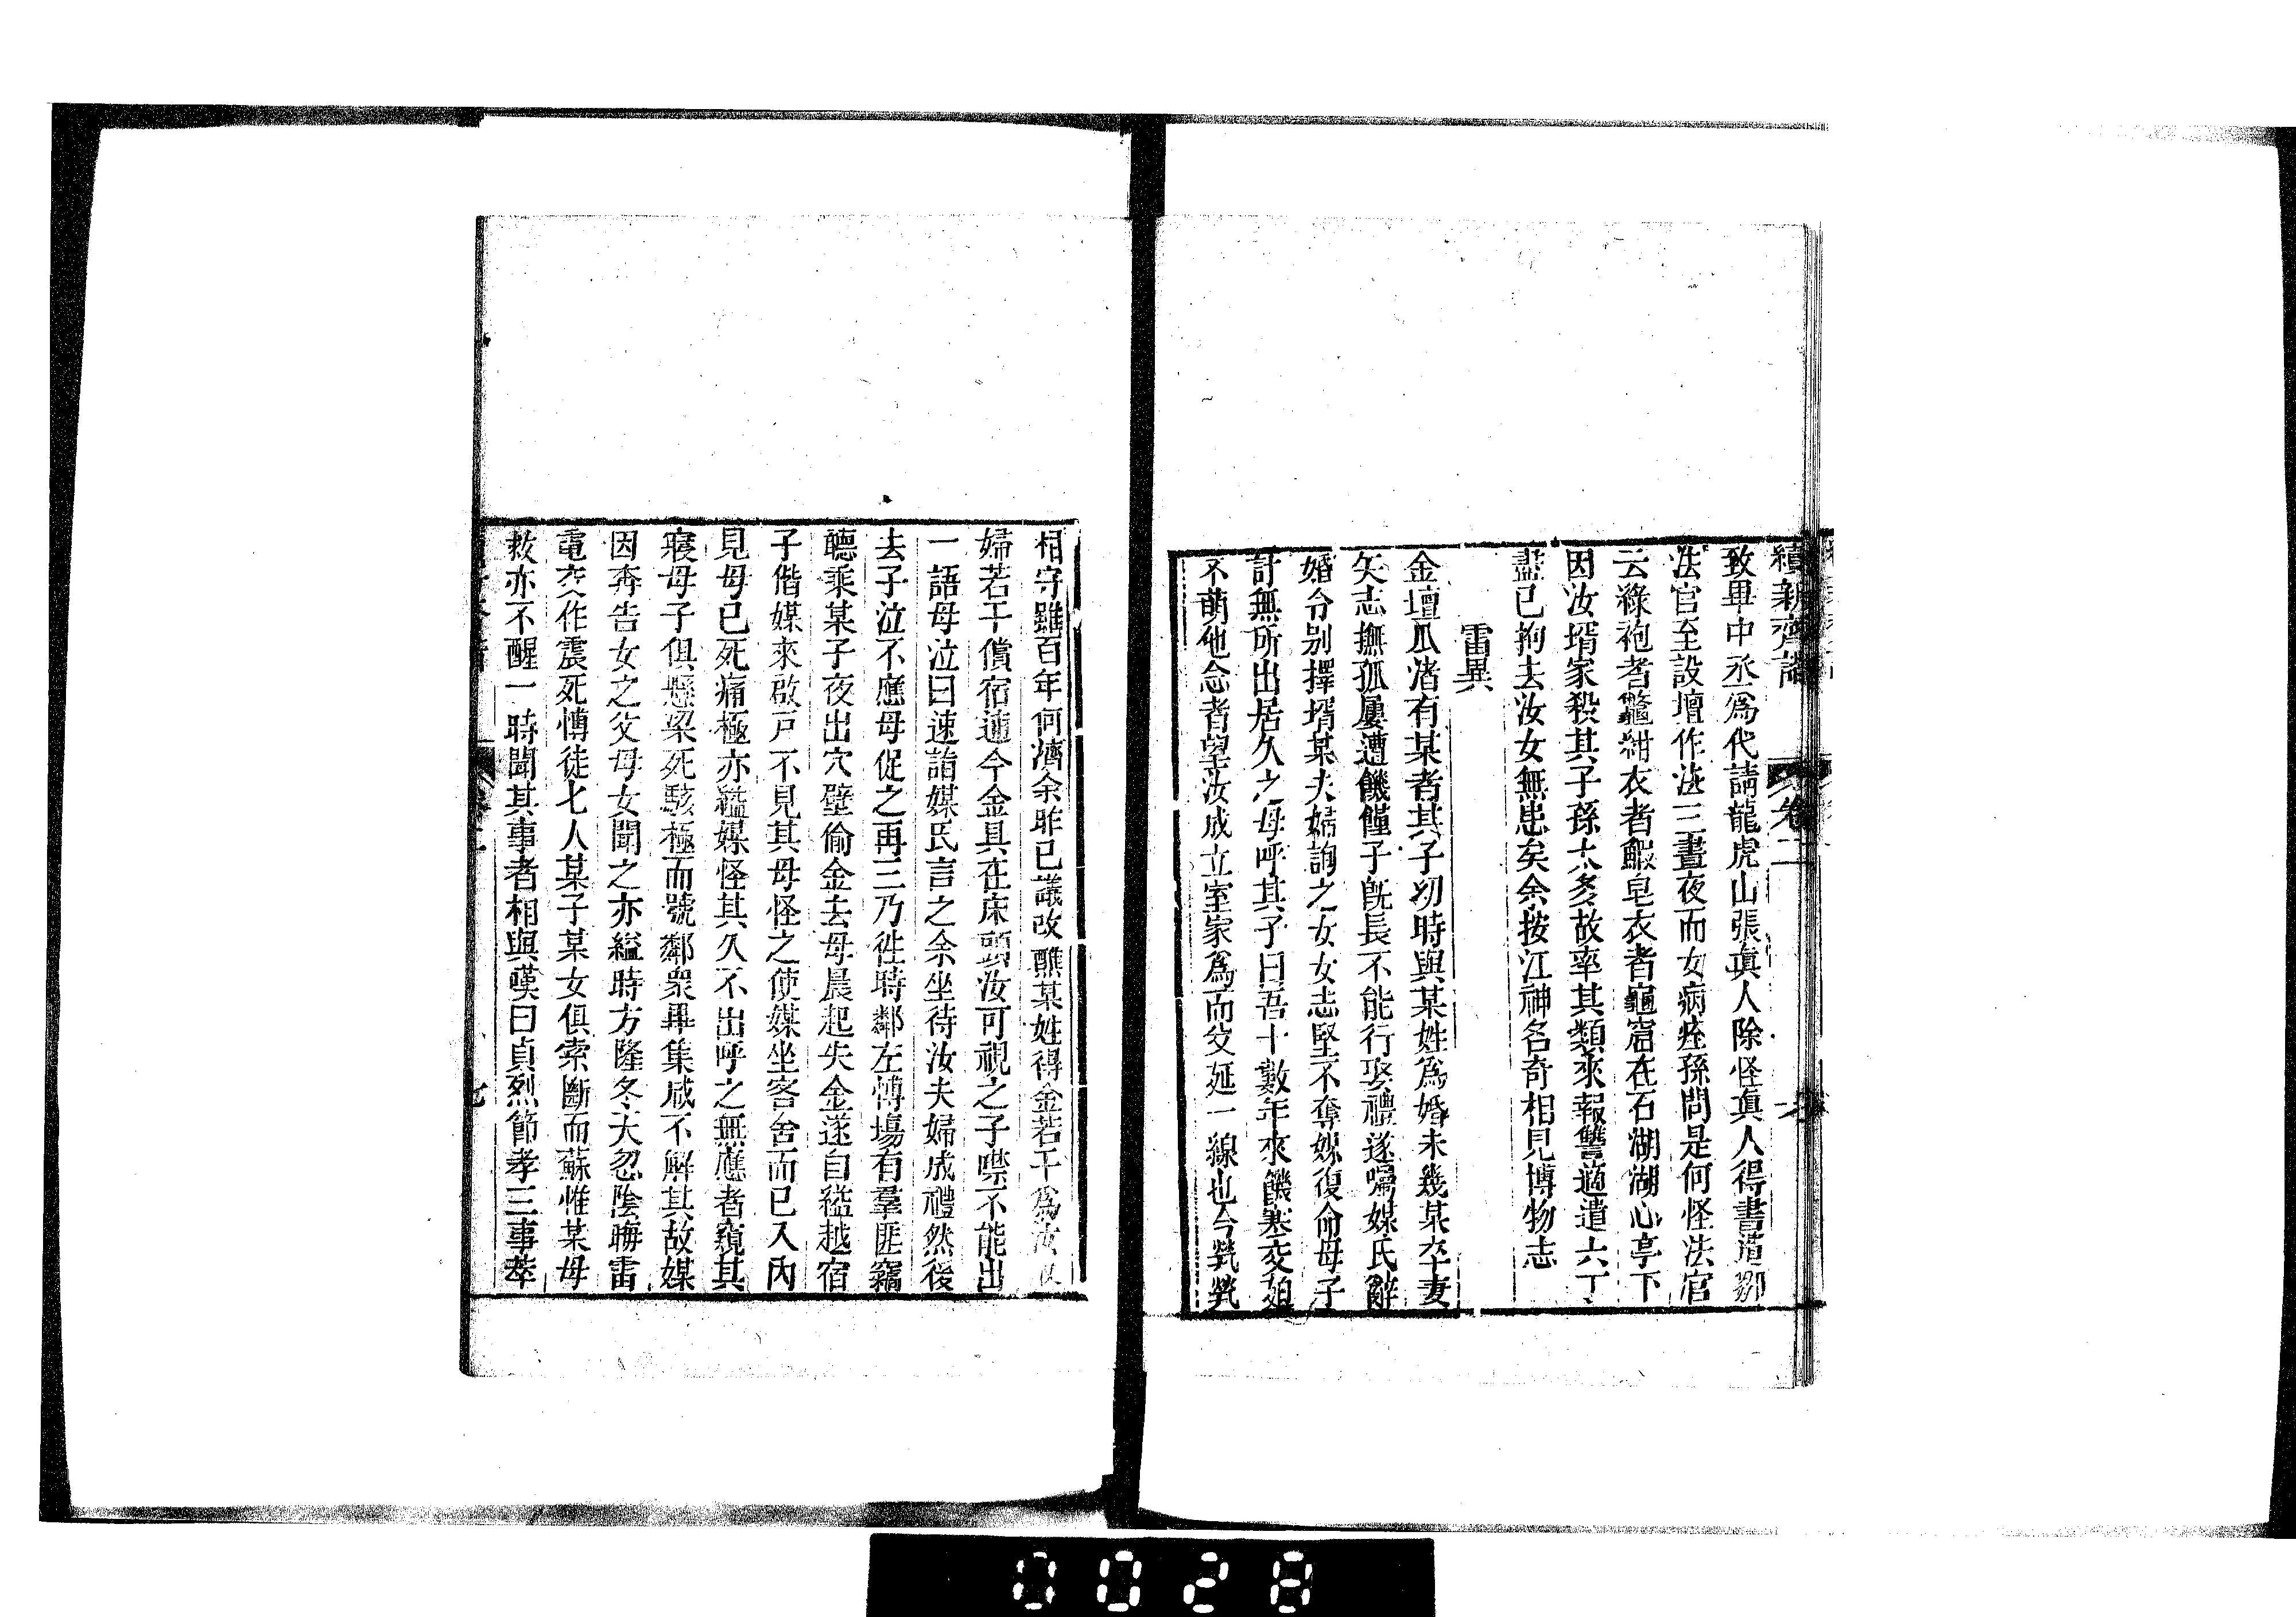 續新齊諧
卷二
致畢中丞爲代請龍虎山張眞人除怪眞人得書道鄧
法官至設壇作法三晝夜而女病痊孫問是何怪法官
云綠袍者鼈紺衣者鰕皂衣者龜窟在石湖湖心亭下
因汝壻家殺其子孫太多故率其類來報讐適遣六丁
盡已拘去汝女無患矣余按江神名奇相見博物志
雷異
金壇瓜渚有某者其子初時與某姓爲婚未幾某卒妻
矢志撫孤屢遭饑饉子旣長不能行娶禮遂囑媒氏辭
婚令別擇壻某夫婦詢之女女志堅不奪媒復命母子
計無所出居久之母呼其子曰吾十數年來饑寒交迫
不萌他念者望汝成立室家爲而父延一線也今煢煢
相守雖百年何濟余昨已議改醮某姓得金若干爲汝
婦若干償宿逋今金具在床頭汝可視之子噤不能出
一語母泣曰速詣媒氏言之余坐待汝夫婦成禮然後
去子泣不應母促之再三乃往時鄰左博場有羣匪竊
聽乘某子夜出穴壁偷金去母晨起失金遂自縊越宿
子偕媒來啟戸不見其母怪之使媒坐客舍而已入內
見母已死痛極亦縊媒怪其久不出呼之無應者窺其
寢母子俱懸梁死駭極而號鄰衆畢集咸不解其故媒
因奔告女之父母女聞之亦縊時方隆冬天忽陰晦雷
電交作震死博徒七人某子某女俱索斷而蘇惟某母
救亦不醒一時聞其事者相與嘆曰貞烈節孝三事萃
0028